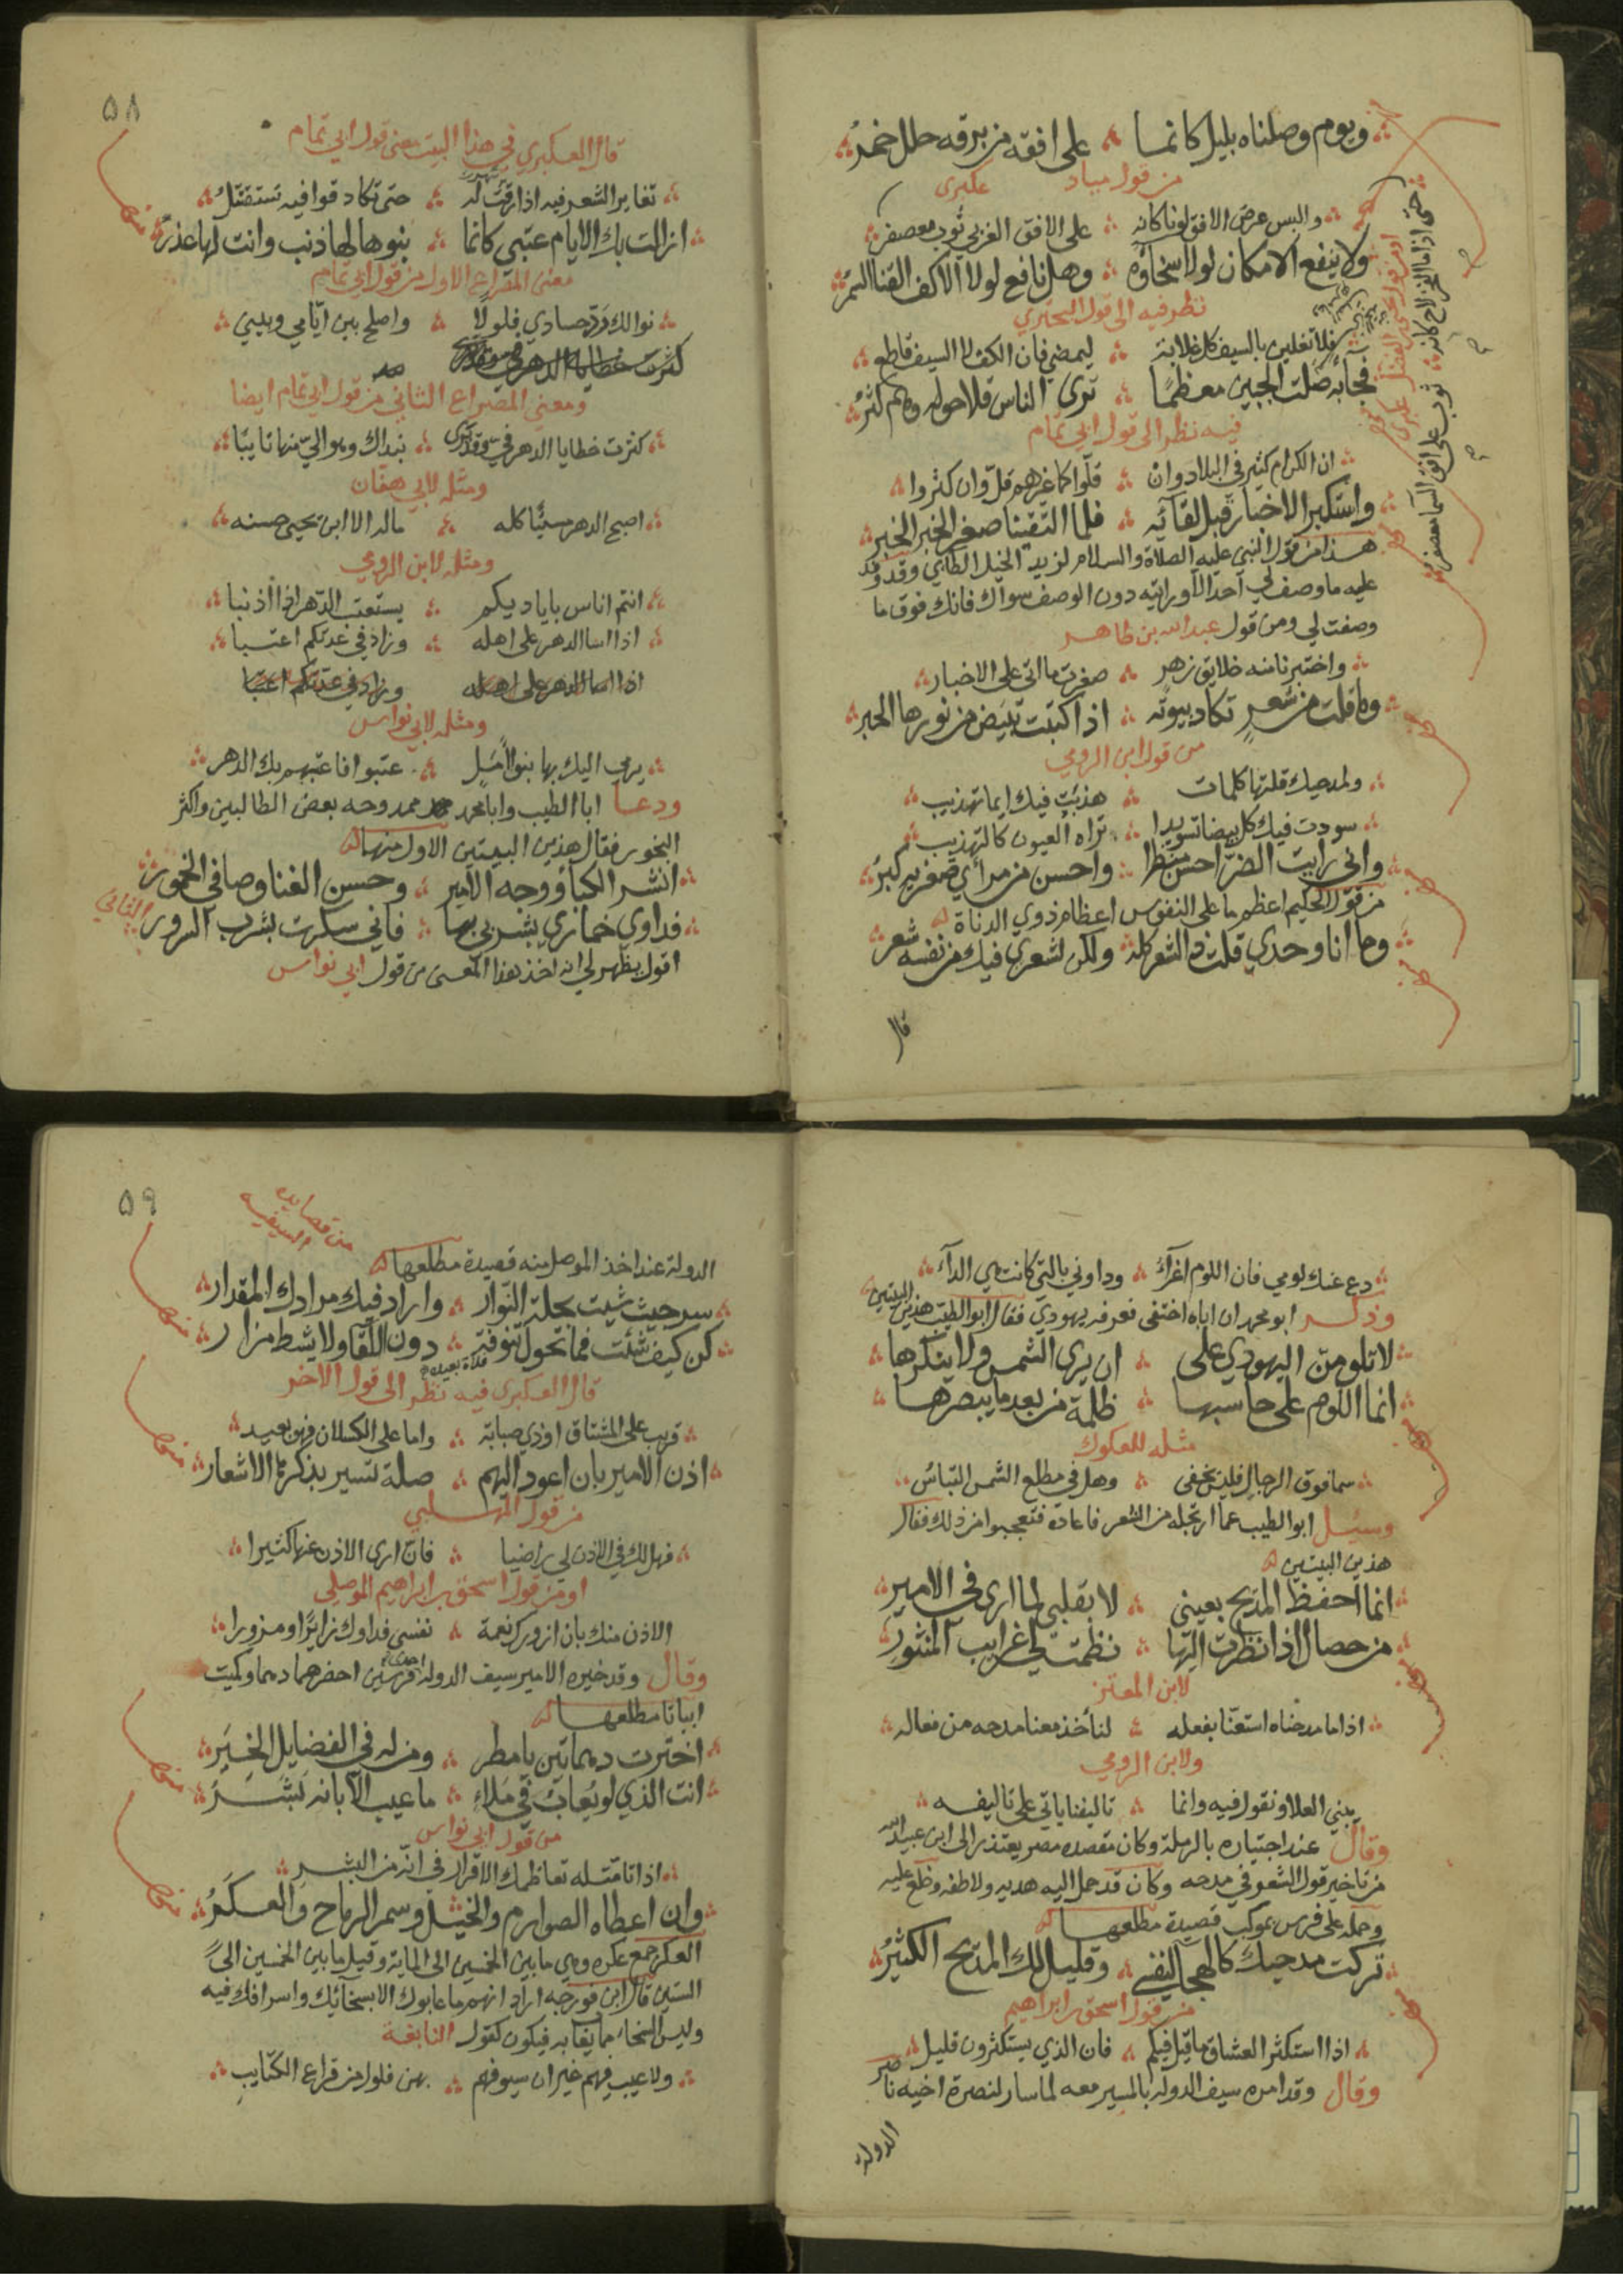 ويوم وصلناه بليل كانما ∴ على افقه من برقه حلل حمرُ
من قول مياد عكبرى
والبس عرض الافق لونا كانه ∴ على الافق الغربي ثوب معصفر
ولا ينفع الامكان لولا سخاؤه ∴ وهل نافع لولا الاكف القنا السمرُ
نظر فيه الى قول البحتري
فلا تغلين بالسيف كل غلابة ∴ ليمضي فان الكف لا السيف قاطع
فجآبه صلت الجبين معظمًا ∴ ترى الناس قلا حوله وهم كثرُ
فيه نظر الى قول ابي تمام
ان الكرام كثير في البلاد وان ∴ قلّوا كما غيرهم قلّ وان كثروا
واستكبر الاخبار قبل لقآئه ∴ فلما التقينا صغر الخبر الخبر
هذا من قول النبي عليه الصلاة والسلام لزيد الخيل الطائي وقد وفد
عليه ما وصف لي احد الا ورايته دون الوصف سواك فانك فوق ما
وصفت لي ومن قول عبد الله بن طاهر
واختبرنا منه خلايق زهر ∴ صغرت ما اتى على الاخبار
وما قلت من شعرٍ تكاد بيوته ∴ اذا كتبت تبيض من نورها الحبر
من قول ابن الرومي
ولمدحيك قلتها كلمات ∴ هذبت فيك ايما تهذيب
سودت فيك كل بيضا تسويدا ∴ تراه العيون كالتهذيب
واني رايت الضرّ احسن منظرا ∴ واحسن من مرأي صغير به كبرُ
من قول الحكيم اعظم ما على النفوس اعظام ذوي الدناة
وما انا وحدي قلت ذا الشعر كله ∴ ولكن لشعري فيك من نفسه شعر
قال
حتى اذا ما الفجر لاح كانه ∴ ثوب على افق السما معصفر
٥٨
قال العكبري في هذا البيت معنى قول ابي تمام
تغاير الشعر فيه اذ ارقت له ∴ حتى تكاد قوافيه تستقتلُ
ازالت بك الايام عتبي كانما ∴ بنوها لها ذنب وانت لها عذرُ
معنى المصراع الاول من قول ابي تمام
نوالك ردّ حسادي فلولًا ∴ واصلح بين ايّامي وبيني
كثرت خطايا الدهر في وقد يرى
ومعنى المصراع الثاني من قول ابي تمام ايضا
كثرت خطايا الدهر فيّ وقد يرى ∴ بنداك وهو اليّ منها تايبًا
ومثله لابي هفان
اصبح الدهر مسيئًا كله ∴ ماله الا ابن يحيى حسنه
ومثله لابن الرومي
انتم اناس باياديكم ∴ يستعتب الدّهر اذا اذنبا
اذا اسا الدهر على اهله ∴ وزاد في غدتكم اعتبا
اذا اسا الدهر على اهله وزاد في عدتكم اعتبا
ومثله لابي نواس
يرمي اليك بها بنو الأمَلِ ∴ عتبوا فاعتبهم بك الدهر
ودعا ابا الطيب وابا محمد ممدوحه بعض الطالبين واكثر
البخور فقال هذين البيتين الاول منهما
انشر الكبآ ووجه الامير ∴ وحسن الغنا وصافي الخمور
فداوي خماري بشربي بها ∴ فاني سكرت بشرب السرور الثاني
اقول يظهر لي انه اخذ هذا المعنى من قول ابي نواس
دع عنك لومي فان اللوم اغرآء ∴ وداوني بالتي كانت هي الدآء
وذكر ابو محمد ان اباه اختفى فعرفه يهودي فقال ابو الطيب هذين البيتين
لا تلومن اليهودي على ∴ ان يرى الشمس ولا ينكرها
انما اللوم على حاسبها ∴ ظلمة من بعد ما يبصرها
مثله للعكوك
سما فوق الرجال فليس يخفى ∴ وهل في مطلع الشمس التباسُ
وسئل ابو الطيب عما ارتجله من الشعر فاعاده فتعجبوا من ذلك فقال
هذين البيتين
انما احفظ المديح بعيني ∴ لا بقلبي لما ارى في الامير
من خصال اذا نظرت اليها ∴ نظمت لي غرايب المنثور
لابن المعتز
اذا ما مدحناه استعنّا بفعله ∴ لناخذ معنا مدحه من فعاله
ولابن الرومي
يبني العلا ونقول فيه وانما ∴ تاليفنا ياتي على تاليفه
وقال عند اجتيازه بالرملة وكان مقصده مصر يعتذر الى ابن عبيد الله
من تاخير قول الشعر في مدحه وكان قد حمل اليه هديه ولاطفه وخلع عليه
وحمله على فرس بموكب قصيدة مطلعها
تركت مدحيك كالهجا لنفسي ∴ وقليل لك المديح الكثيرُ
من قول اسحق بن ابراهيم
اذا استكثر العشاق ما قيل فيكم ∴ فان الذي يستكثرون قليل
وقال وقد امره سيف الدوله بالمسير معه لما سار لنصرة اخيه ناصر
الدولة
٥٩
من قصايده السيفيه
الدولة عند اخذ الموصل منه قصيدة مطلعها
سر حيث شيت بحلة النوار ∴ واراد فيك مرادك المقدار
كن كيف شئت فما تحول تنوفة ∴ دون اللّقا ولا يشط مزار
فلاة بعيدة
قال العكبري فيه نظر الى قول الآخر
قريب على المشتاق او ذي صبابة ∴ واما على الكسلان فهو بعيد
اذن الامير بان اعود اليهم ∴ صلة تسير بذكرها الاشعار
من قول المهلبي
فهل لك في الاذن لي راضيا ∴ فاني ارى الاذن عنها كثيرا
او من قول اسحق بن ابراهيم الموصلي
الاذن منك بان ازوركم نعمة ∴ نفسي فداوك زايرًا ومزورا
وقال وقد خيره الامير سيف الدوله احدى فرسين احضرهما دهما وكميت
ابياتا مطلعها
اخترت دهماتين يا مطر ∴ ومن له في الفضايل الخيَرُ
انت الذي لو يعاب في ملاء ∴ ما عيب الا بانه بَشَرُ
من قول ابي نواس
اذا تامّله تعاظمك الاقرار في انّه من البشر
وان اعطاه الصوارم والخيل وسمر الرماح والعكَرُ
العكر جمع عكره وهي ما بين الخمسين الى المايه وقيل ما بين الخمسين الى
الستين قال ابن فورجه اراد انهم ما عابوك الا بسخائك واسرافك فيه
وليس السخاء مما يعاب به فيكون كقول النابغة
ولا عيب فيهم غير ان سيوفهم ∴ بهن فلول من قراع الكتايب